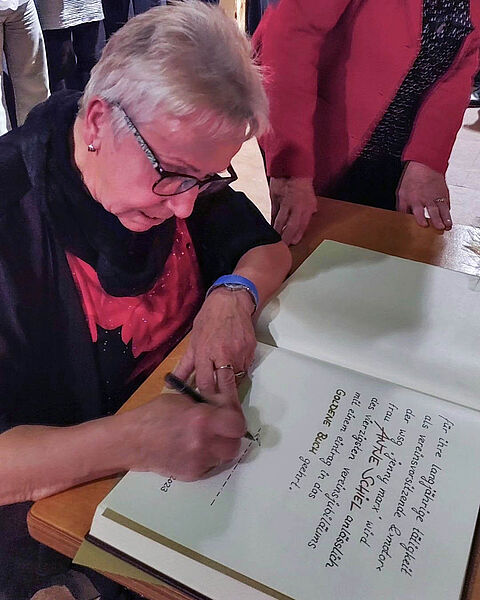 für ihre langjährige tätigkeit
als vereinsvorsitzende
der wsg „jenny marx“ wird
frau ANTJE SCHIEL anlässlich
des vierzigsten vereinsjubiläums
mit einem eintrag in das
GOLDENE BUCH
geehrt.
2023